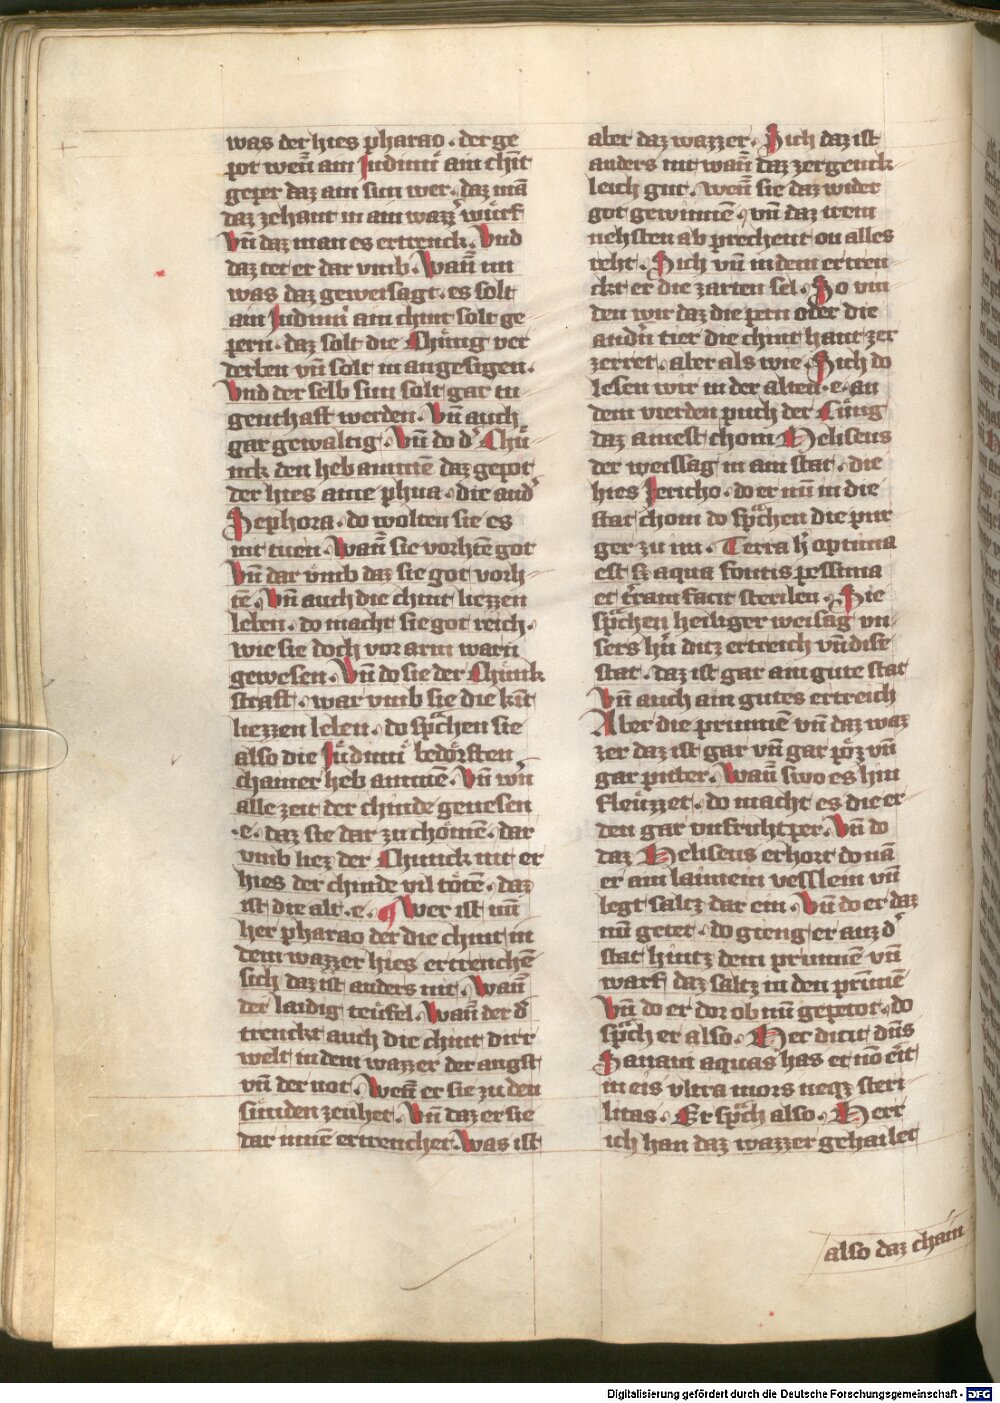 was der hies pharao · der ge
pot wen̄ ain Judinn̄ ain chīt
geper daz ain sun wer · daz mā
daz zehant in ain wazz̾ wůrf
Vn̄ daz man es ertrenck · Vnd
daz tet er dar vmb · Wan̄ im
was daz geweisagt · es solt
ain Judinn̄ ain chint solt ge
pern · daz solt die Chůnig ver
derben vn̄ solt in angesigen ·
Vnd der selb sun solt gar tu
genthaft werden · Vn̄ auch
gar gewaltig · Vn̄ do d̾ Chů
nick den heb ammē daz gepot
der hies aine phua · die and̾
Sephora · do wolten sie es
nit tuen · Wan̄ sie vorhtē got
Vn̄ dar vmb daz sie got vorh
tē · Vn̄ auch die chint liezzen
leben · do macht sie got reich ·
wie sie doch vor arm warn
gewesen · Vn̄ do sie der Chůnk
straft · war vmb sie die kīt
liezzen leben · do sp̄chen sie
also die Jůdinn̄ bedörften
chainer heb ammē · Vn̄ wr̄n
alle zeit der chinde genesen
·e· daz sie dar zu chömē · dar
vmb liez der Chunick nit er
hies der chinde vil tötē · daz
ist die alt · e · ¶ Wer ist nū
her pharao der die chint in
dem wazzer hies ertrenchē
sich daz ist anders nit · Wan̄
der laidig teufel · Wan̄ der d̾
trenckt auch die chint dirr
welt in dem wazzer der angst
vn̄ der not · Wen̄ er sie zu den
sůnden zeuhet · Vn̄ daz er sie
dar innē ertrenchet · Was ist
aber daz wazzer · Sich daz ist
anders nit wan̄ daz zergenck
leich gut · wen̄ sie daz wider
got gewinnē · vn̄ daz irem
nehsten ab prechent on alles
reht · Sich vn̄ in dem ertren
ckt er die zarten sel · So vin
den wir daz die pern oder die
andn̄ tier die chint hant zer
zerret · aber als wie · Sich do
lesen wir in der alten · e · an
dem vierden puch der Kůnig
daz ainest chom Heliseus
der weissag in ain stat · die
hies Jericho · do er nū in die
stat chom do sp̄chen die pur
ger zu im · Terra h̄ optima
est sꝫ aqua fontis pessima
et t̄ram facit sterilen · Sie
sp̄chen heiliger weisag vn
sers hr̄n ditz ertreich vn̄ dise
stat · daz ist gar ain gute stat
Vn̄ auch ain gutes ertreich
Aber die prunnē vn̄ daz waz
zer daz ist gar vn̄ gar pöz vn̄
gar piter · Wan̄ swo es hin
fleuzzet · do macht es die er
den gar vnfruhtper · Vn̄ do
daz Heliseus erhort do nā
er ain laimein vesslein vn̄
legt saltz dar ein · Vn̄ do er daz
nū getet · do gieng er auz d̾
stat hintz dem prunnē vn̄
warf daz saltz in den prūnē
Vn̄ do er dor ob nū gepetot · do
sp̄ch er also · Hec dicit dn̄s
Sanaui aquas has et nō eīt
in eis vltra mors neqꝫ steri
litas · Er sp̄ch also · Herr
ich han daz wazzer gehailet
also daz chain
Digitalisierung gefördert durch die Deutsche Forschungsgemeinschaft - DFG